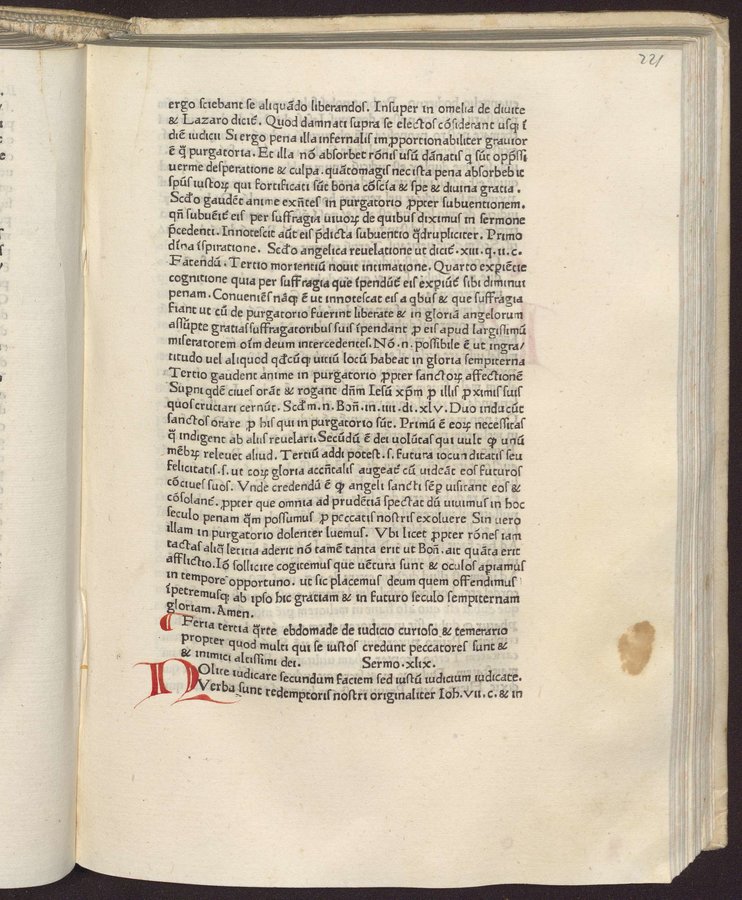 221
ergo sciebant se aliquãdo liberandos. Insuper in omelia de diuite
& Lazaro dicit̃. Quod damnati supra se electos cõsiderant usq; ĩ
diẽ iudicii Si ergo pena illa infernalis im ꝓportionabiliter grauior
ẽ q̃ purgatoria. Et illa nõ absorbet rõnis usũ dãnatis q sũt opp̃ssi
uerme desperatione & culpa. quãtomagis nec ista pena absorbebit
sp̃us iustoꝝ qui fortificati sũt bona cõscĩa & spe & diuina gratia.
Scd̃o gaudẽt anime exñtes in purgatorio ꝓpter subuentionem.
qñ subuẽit̃ eis per suffragia uiuoꝝ de quibus diximus in sermone
p̃cedenti. Innotescit aũt eis p̃dicta subuentio q̃drupliciter. Primo
dĩna ĩspiratione. Scd̃o angelica reuelatione ut dicit̃. xiii. q. ii. c.
Fatendũ. Tertio morientiũ nouit intimatione. Quarto exꝑiẽtie
cognitione quia per suffragia que ĩpendũt̃ eis exꝑiũt̃ sibi diminui
penam. Conueniẽs nãq; ẽ ut innotescat eis a qbus & que suffragia
fiant ut cũ de purgatorio fuerint liberate & in gloriã angelorum
assũpte gratias suffragatoribus suis ĩpendant ꝓ eis apud largissimũ
miseratorem oĩm deum intercedentes. Nõ. n. possibile ẽ ut ingra/
titudo uel aliquod qd̃cũq; uitiũ locũ habeat in gloria sempiterna
Tertio gaudent anime in purgatorio ꝓpter sanctoꝝ affectionẽ
Supni qdẽ ciues orãt & rogant dñm Iesũ xp̃m ꝓ illis ꝓximis suis
quos cruciari cernũt. Scd̃m. n. Boñ. in. iiii. di. xlv. Duo inducũt
sanctos orare ꝓ his qui in purgatorio sũt. Primũ ẽ eoꝝ necessitas
q̃ indigent ab aliis reuelari. Secũdũ ẽ dei volũtas qui uult ꝙ unũ
mẽbꝝ releuet aliud. Tertiũ addi potest. s. futura iocunditatis seu
felicitatis. s. ut eoꝝ gloria accñtalis augeat̃ cũ uideãt eos futuros
cõciues suos. Vnde credendũ ẽ ꝙ angeli sancti sẽp uisitant eos &
cõsolant̃. ꝓpter que omnia ad prudẽtiã spectat dũ uiuimus in hoc
seculo penam q̃m possumus ꝓ peccatis nostris exoluere Sin uero
illam in purgatorio dolenter luemus. Vbi licet ꝓpter rõnes iam
tactas aliq̃ letitia aderit nõ tamẽ tanta erit ut Boñ. ait quãta erit
afflictio. Iõ sollicite cogitemus que uẽtura sunt & oculos apiamus
in tempore opportuno. ut sic placemus deum quem offendimus
ĩpetremusq; ab ipso hic gratiam & in futuro seculo sempiternam
gloriam. Amen.
Feria tertia q̃rte ebdomade de iudicio curioso & temerario
propter quod multi qui se iustos credunt peccatores sunt &
& inimici altissimi dei. Sermo. xlix.
NOlite iudicare secundum faciem sed iustũ iudicium iudicate.
Verba sunt redemptoris nostri originaliter Ioh. vii. c. & in